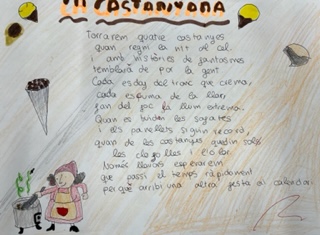 LA CASTANYADA
Torrarem quatre castanyes
quan regni la nit de cel.
i amb històries de fantasmes
temblarà de por la gent.
Cada esclat del tronc que crema,
cada espurna de la llar,
fan del foc la llum extrema.
Quan es buiden les safates
i els panellets siguin record,
quan de les castanyes quedin sols
les clofolles i l'olor.
Només llavors esperarem
que passi el temps ràpidament
perquè arribi una altra festa al calendari.